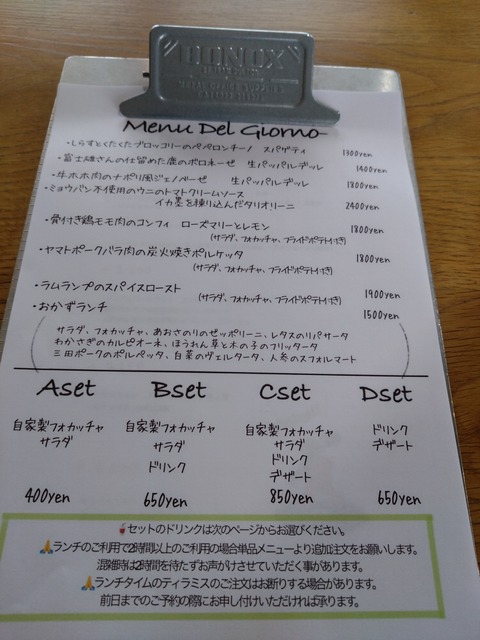 Menu Del Giorno
・しらすとくたくたブロッコリーのペペロンチーノ スパゲティ 1300yen
・富士雄さんの仕留めた鹿のボロネーゼ 生パッパルデッレ 1400yen
・牛ホホ肉のナポリ風ジェノベーゼ 生パッパルデッレ 1800yen
・ミョウバン不使用のウニのトマトクリームソース
イカ墨を練り込んだタリオリーニ 2400yen
・骨付き鶏モモ肉のコンフィ ローズマリーとレモン 1800yen
(サラダ、フォカッチャ、フライドポテト付き)
・ヤマトポークバラ肉の炭火焼きポルケッタ 1800yen
(サラダ、フォカッチャ、フライドポテト付き)
・ラムランプのスパイスロースト (サラダ、フォカッチャ、フライドポテト付き) 1900yen
・おかずランチ 1500yen
サラダ、フォカッチャ、あおさのりのゼッポリーニ、レタスのリパサータ
わかさぎのカルピオーネ、ほうれん草と木の子のフリッタータ
三田ポークのポルペッタ、白菜のヴェルタータ、人参のスフォルマート
Aset Bset Cset Dset
自家製フォカッチャ 自家製フォカッチャ 自家製フォカッチャ ドリンク
サラダ サラダ サラダ デザート
ドリンク ドリンク
デザート
400yen 650yen 850yen 650yen
セットのドリンクは次のページからお選びください。
ランチのご利用で2時間以上のご利用の場合単品メニューより追加注文をお願いします。
混雑時は2時間を待たずお声がけさせていただく事があります。
ランチタイムのティラミスのご注文はお断りする場合があります。
前日までのご予約の際にお申し付けいただければ承ります。